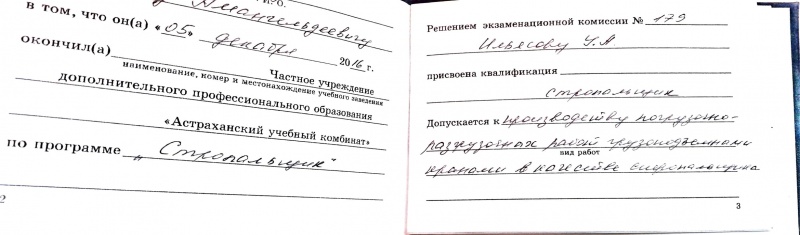 Амангельдеевичу
в том, что он(а) «05» декабря 2016 г.
окончил(а)
Частное учреждение
наименование, номер и местонахождение учебного заведения
дополнительного профессионального образования
«Астраханский учебный комбинат»
по программе „Стропальщик"
2
Решением экзаменационной комиссии № 179
Ильясову У.А
присвоена квалификация
Стропальщик
Допускается к производству погрузочно-
разгрузочных работ грузоподъемными
вид работ
кранами в качестве стропальщика
3